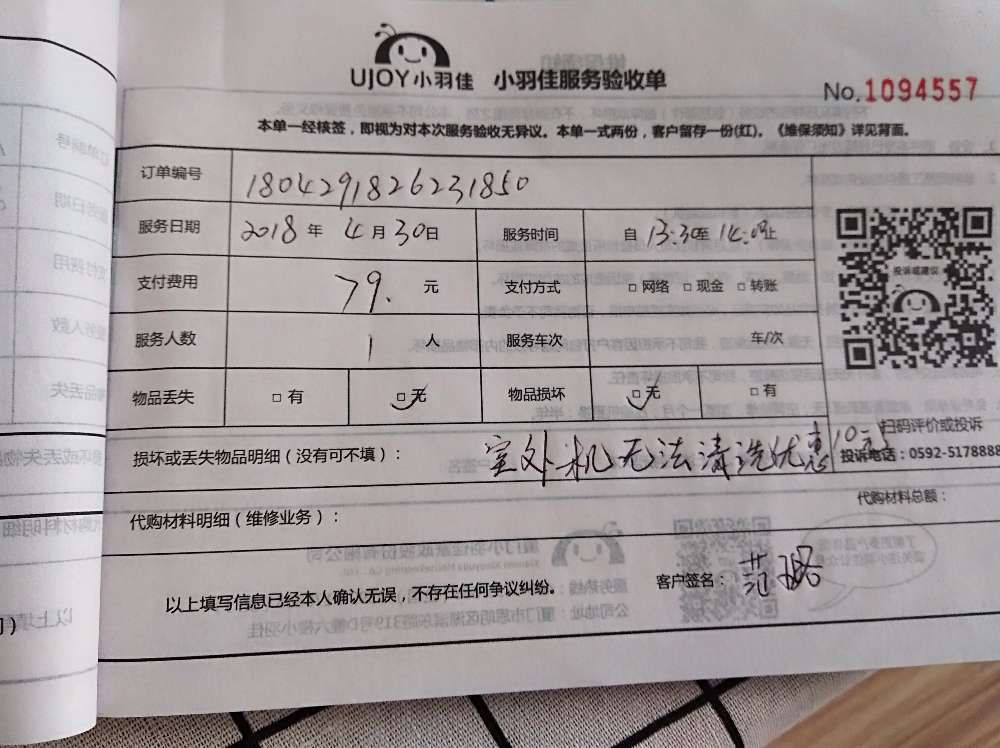 UJOY小羽佳 小羽佳服务验收单
No.1094557
本单一经核签，即视为对本次服务验收无异议。本单一式两份，客户留存一份(红)。《维保须知》详见背面。
订单编号 1804291826231850
服务日期 2018年4月30日 服务时间 自13:30至14:00止
支付费用 79.元 支付方式 □网络 □现金 □转账
服务人数 1人 服务车次 车/次
物品丢失 □有 □无 物品损坏 □无 □有
投诉或建议
损坏或丢失物品明细（没有可不填）： 室外机无法清洗优惠10元
扫码评价或投诉
投诉电话：0592-5178888
代购材料明细（维修业务）： 代购材料总额：
以上填写信息已经本人确认无误，不存在任何争议纠纷。 客户签名： 范璐